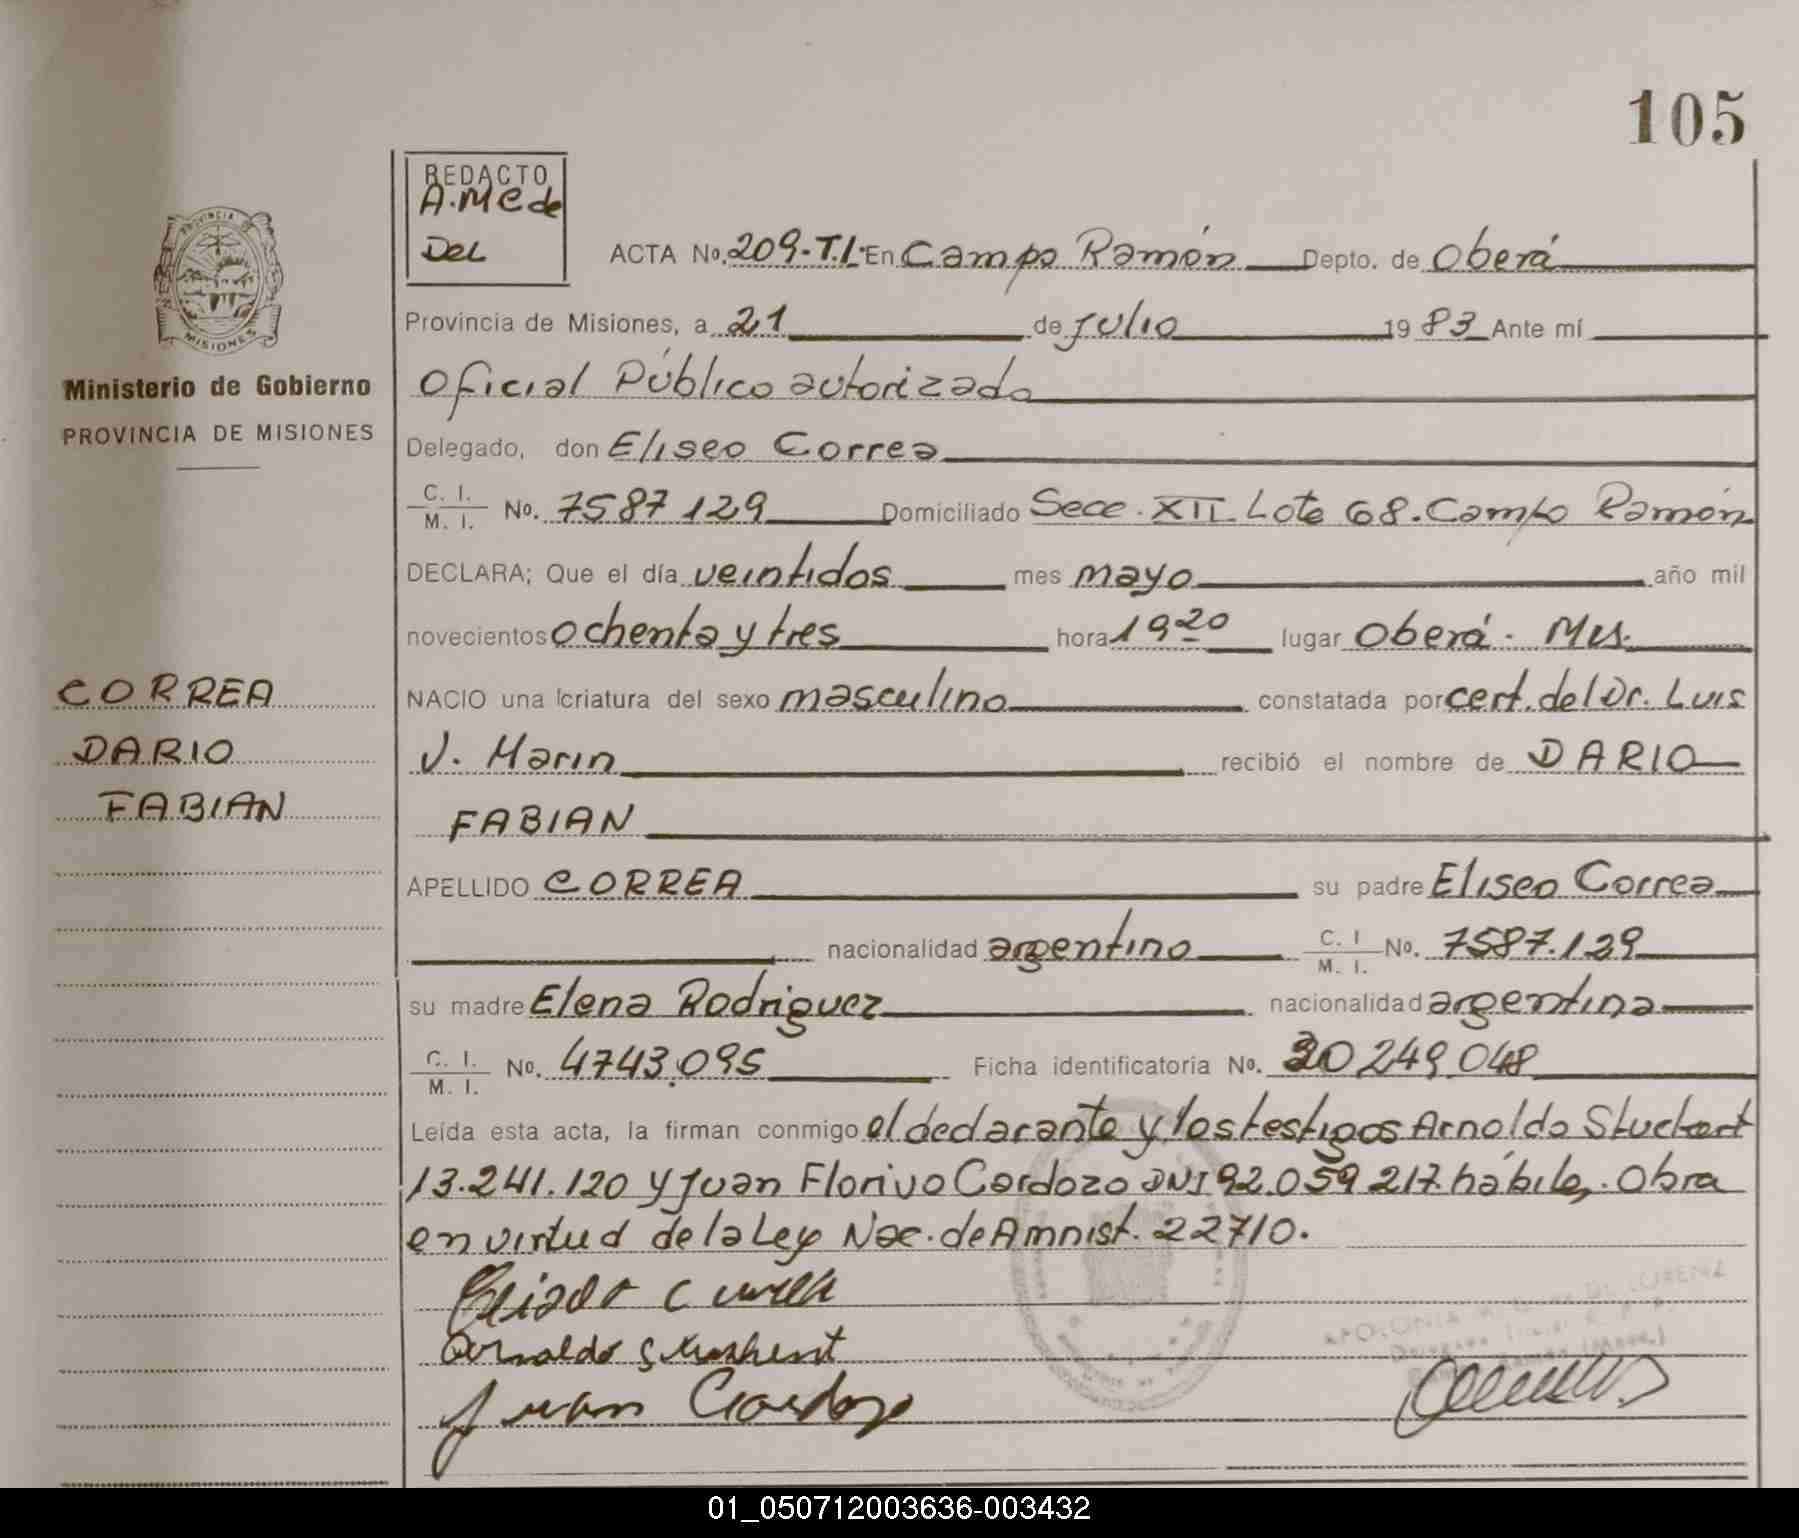 105
REDACTO
A.M C de
DEL
ACTA No. 209-T.I. En Campo Ramón Depto. de Oberá
Provincia de Misiones, a 21 de julio 19 83 Ante mí
Oficial Público autorizado
Delegado, don Eliseo Correa
C. I. M. I. No. 7587 129 Domiciliado Secc. XII. Lote 68. Campo Ramón
DECLARA; Que el día veintidos mes mayo año mil
novecientos ochenta y tres hora 19 20 lugar Oberá. Mis.
NACIO una criatura del sexo masculino constatada por cert. del Dr. Luis
J. Marin recibió el nombre de DARIO
FABIAN
APELLIDO CORREA su padre Eliseo Correa
nacionalidad argentino C. I M. I. No. 7587.129
su madre Elena Rodriguez nacionalidad argentina
C. I. M. I. No. 4743.095 Ficha identificatoria No. 30 249 048
Leída esta acta, la firman conmigo el declarante y los testigos Arnoldo
13.241.120 y Juan Florivo Cardozo DNI 92.059 217. hábiles. Obra
en virtud de la Ley Nac. de Amnist. 22710.
Juan Cardozo
PROVINCIA
MISIONES
Ministerio de Gobierno
PROVINCIA DE MISIONES
CORREA
DARIO
FABIAN
01_050712003636-003432